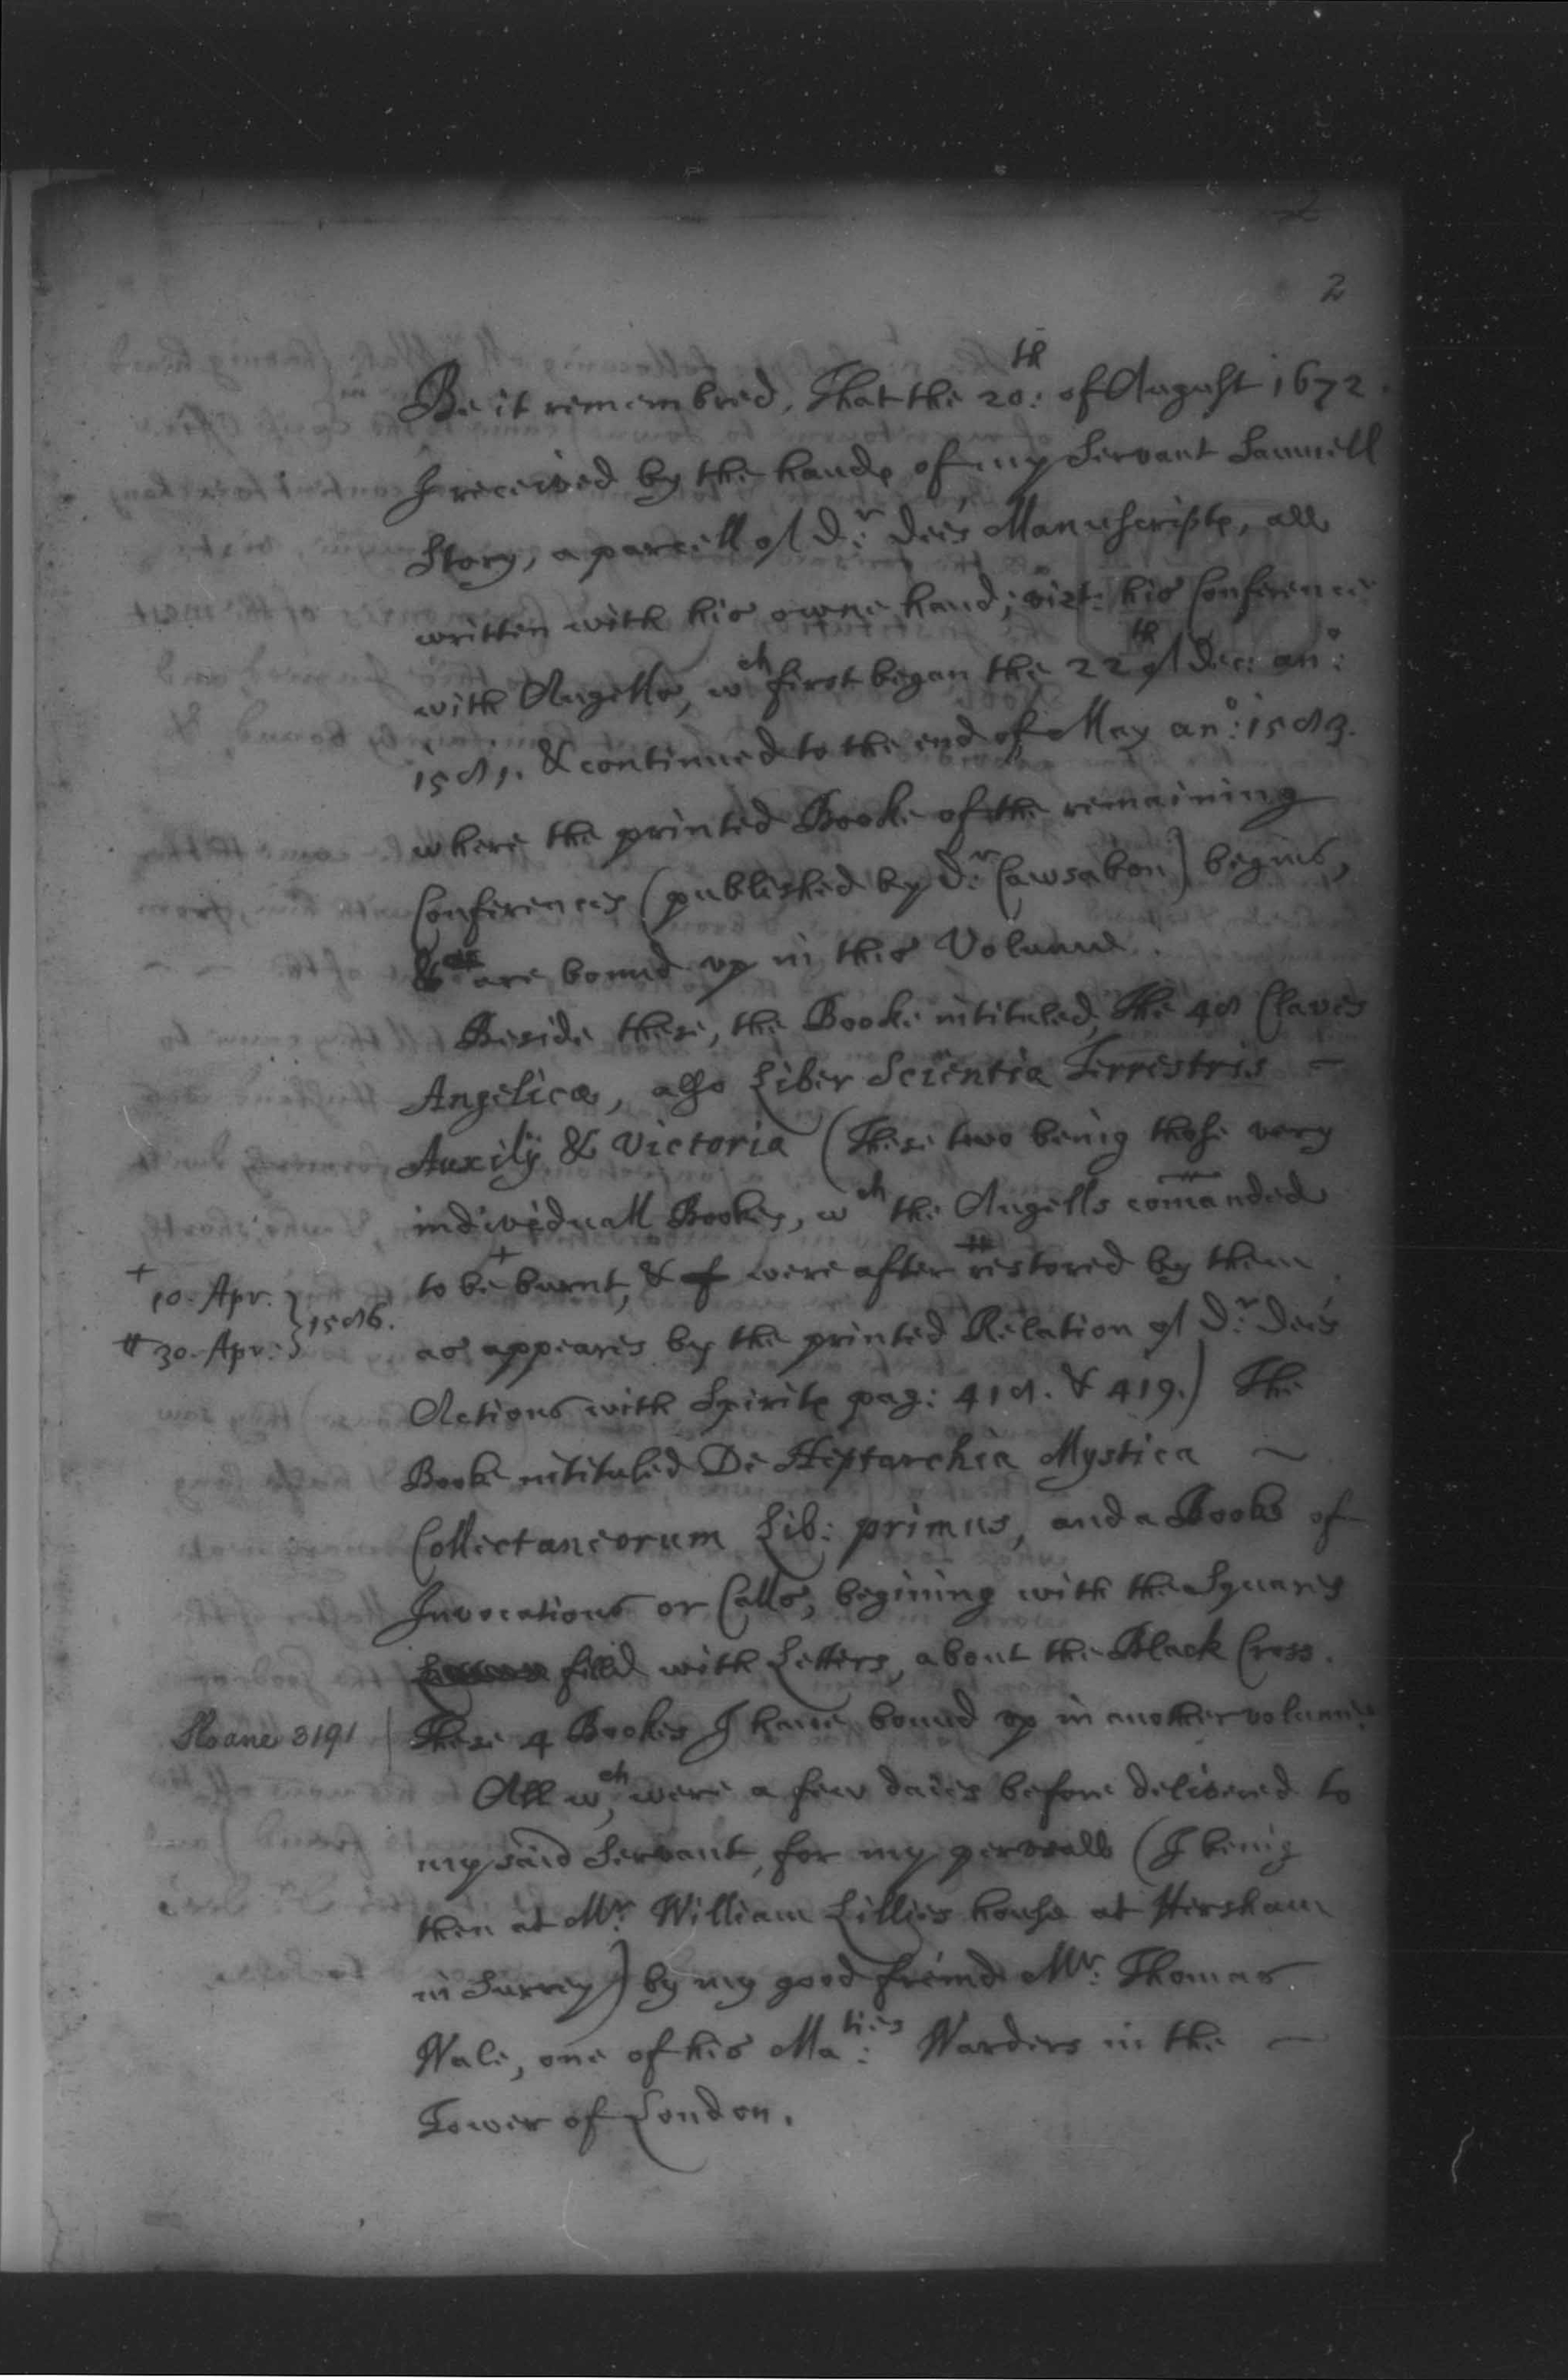 2
Be it remembred, That the 20:th of August 1672.
I received by the hands of my Servant Samuell
Story, a parcell of Dr: Dee's Manuscripts, all
written with his owne hand; vizt: his Conference
with Angells, wch first began the 22th of Dec: ano:
1581. & continued to the end of May ano: 1583.
where the printed Booke of the remaining
Conferences (published by Dr: Cawsabon) begins,
& are bound up in this Volume.
Beside these, the Booke intituled, The 48 Claves
Angelicæ, also Liber Scientia Terrestris –
Auxilij & Victoria (These two being those very
individuall Bookes, wch the Angells comanded
to be + burnt, & were after # restored by them
+ 10. Apr. } 1586.
# 30. Apr: }
as appeares by the printed Relation of Dr: Dee's
Actions with Spirits pag: 418. & 419.) The
Booke intituled De Heptarchia Mystica ~
Collectaneorum Lib: primus, and a Booke of
Invocations or Calls, begining with the Squares
filld with Letters, about the Black Cross.
Sloane 3191
These 4 Bookes I have bound up in another volume
All wch, were a few daies before delivered to
my said Servant, for my perusall (I being
then at Mr: William Lillies house at Hersham
in Surrey) by my good freind Mr: Thomas
Wale, one of his Maties: Warders in the –
Tower of London.